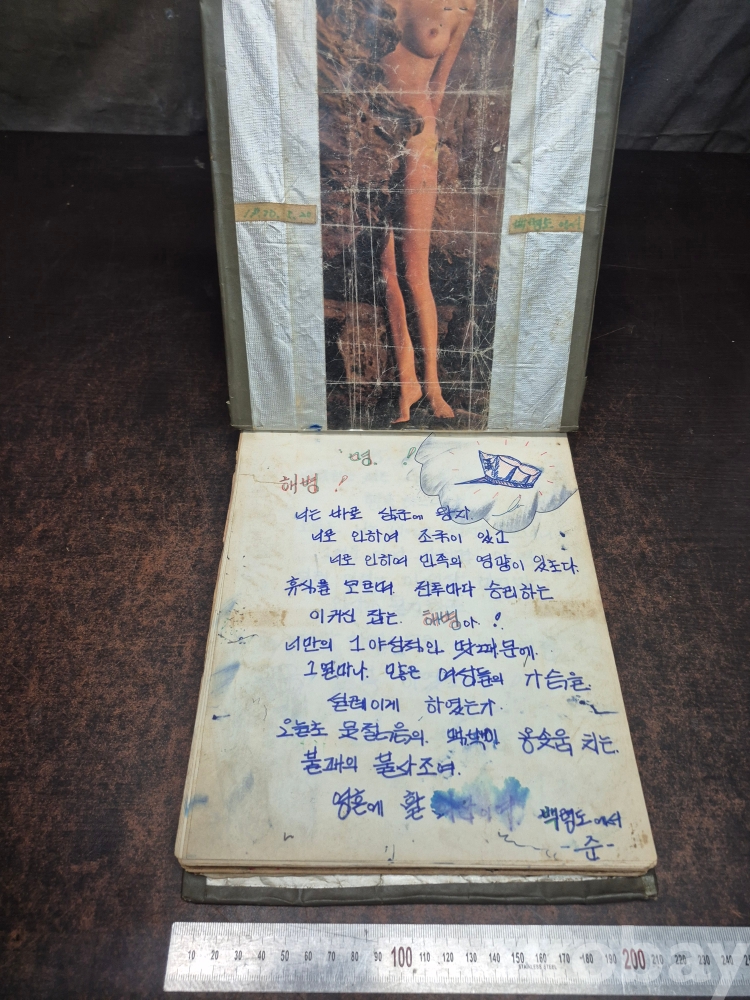 백령도 에서
명. !
해병 !
너는 바로 삼군에 왕자.
너로 인하여 조국이 있고
너로 인하여 민족의 영광이 있도다.
휴식을 모르며 전투마다 승리하는
이거신 잡는. 해병아 !
너만의 그 야성적인 땃때문에.
그 얼마나. 많은 여성들의 가슴을.
설레이게 하였는가.
오늘도 젊음의. 맥박이 용솟움 치는.
불패의 불사조여.
영혼에 활
백령도에서
-준-
10 20 30 40 50 60 70 80 90 100 110 120 130 140 150 160 170 180 190 200 210 220 230 240
STAINLESS STEEL
obay